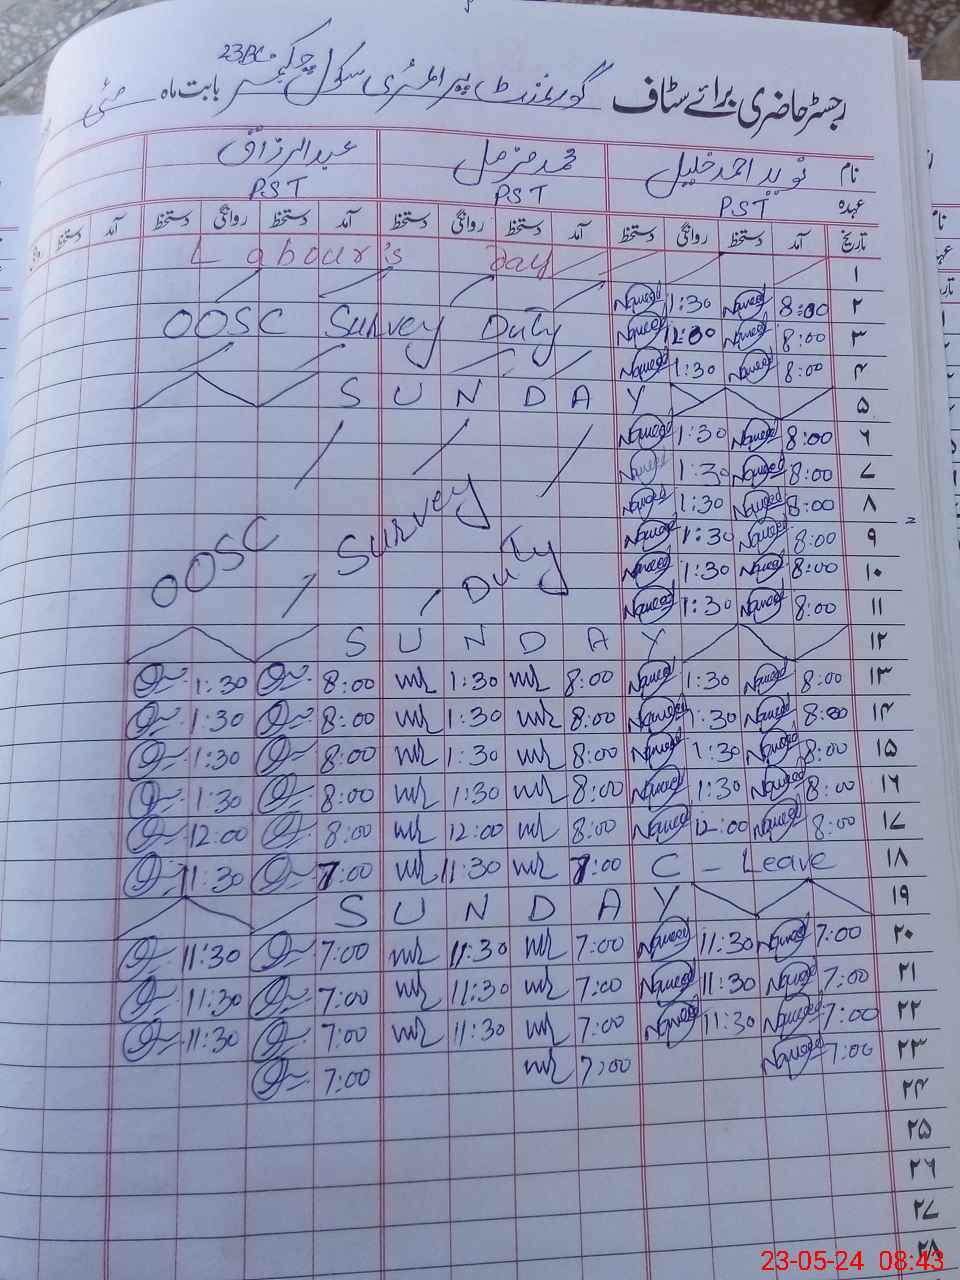 رجسٹر حاضری برائے سٹاف گورنمنٹ پرائمری سکول چک نمبر 23BC بابت ماہ مئی
نام نوید احمد خلیل محمد مزمل عبدالرزاق
عہدہ PST PST PST
تاریخ آمد دستخط روانگی دستخط آمد دستخط روانگی دستخط آمد دستخط روانگی دستخط آمد
۱ Labour's Day
۲ 8:00 Naveed 1:30 Naveed
۳ 8:00 Naveed 12:00 Naveed OOSC Survey Duty
۴ 8:00 Naveed 1:30 Naveed
۵ SUNDAY
۶ 8:00 Naveed 1:30 Naveed
۷ 8:00 Naveed 1:30 Naveed
۸ 8:00 Naveed 1:30 Naveed
۹ 8:00 Naveed 1:30 Naveed OOSC Survey Duty
۱۰ 8:00 Naveed 1:30 Naveed
۱۱ 8:00 Naveed 1:30 Naveed
۱۲ SUNDAY
۱۳ 8:00 Naveed 1:30 Naveed 8:00 1:30 8:00 1:30
۱۴ 8:00 Naveed 1:30 Naveed 8:00 1:30 8:00 1:30
۱۵ 8:00 Naveed 1:30 Naveed 8:00 1:30 8:00 1:30
۱۶ 8:00 Naveed 1:30 Naveed 8:00 1:30 8:00 1:30
۱۷ 8:00 Naveed 12:00 Naveed 8:00 12:00 8:00 12:00
۱۸ C - Leave 7:00 11:30 7:00 11:30
۱۹ SUNDAY
۲۰ 7:00 Naveed 11:30 Naveed 7:00 11:30 7:00 11:30
۲۱ 7:00 Naveed 11:30 Naveed 7:00 11:30 7:00 11:30
۲۲ 7:00 Naveed 11:30 Naveed 7:00 11:30 7:00 11:30
۲۳ 7:00 Naveed 7:00 7:00
۲۴
۲۵
۲۶
۲۷
۲۸
23-05-24 08:43